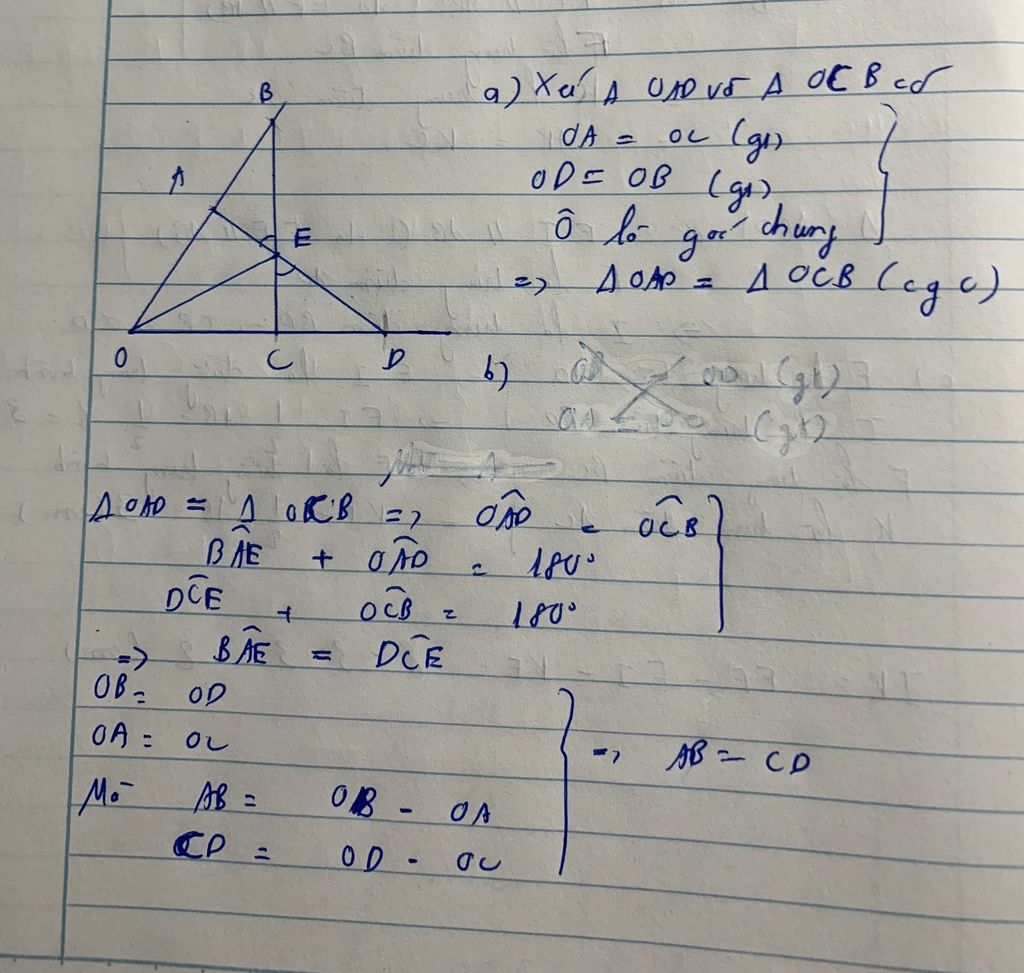 B
A
E
O
C
D
a) Xét Δ OAD và Δ OCB có
OA = OC (gt)
OD = OB (gt)
Ô là góc chung
=> Δ OAD = Δ OCB (c g c)
b)
Δ OAD = Δ OCB => OÂD = OĈB
BÂE + OÂD = 180°
DĈE + OĈB = 180°
=> BÂE = DĈE
OB = OD
OA = OC
=> AB = CD
Mà AB = OB - OA
CD = OD - OC